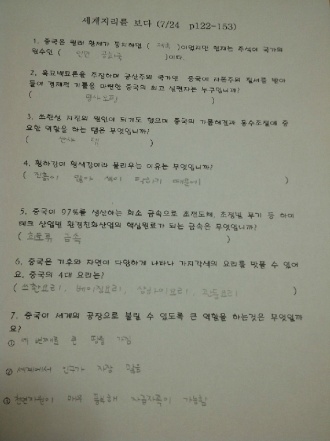 세계지리를 보다 (7/24 p122-153)
1. 중국은 원래 황제가 통치해던 ( 제국 )이었지만 현재는 주석이 국가의
원수인 ( 인민 공화국 )이다
2. 흑묘백묘론을 주장하며 공산주의 국가인 중국이 자본주의 질서를 받아
들여 경제적 기틀을 마련한 중국의 최고 실권자는 누구입니까?
( 덩샤오핑 )
3. 쓰촨성 지진의 원인이 되기도 했으며 중국의 가뭄해결과 홍수조절에 중
요한 역할을 하는 댐은 무엇입니까?
( 싼샤 댐 )
4. 황하강이 황색강이라 불리우는 이유는 무엇입니까?
( 진흙이 많아 색이 탁하기 때문에 )
5. 중국이 97%를 생산하는 희소 금속으로 초전도체, 초정밀 무기 등 하이
테크 산업및 환경친화산업의 핵심원료가 되는 금속은 무엇입니까?
( 희토류 금속 )
6. 중국은 기후와 자연이 다양하게 나타나 가지각색의 요리를 맛볼 수 있어
요. 중국의 4대 요리는?
( 쓰촨요리, 베이징요리, 상하이요리, 광둥요리
7. 중국이 세계의 공장으로 불릴 수 있도록 큰 역할을 하는것은 무엇일까
요?
① 세 번째로 큰 땅을 가짐
② 세계에서 인구가 가장 많음
③ 천연자원이 매우 풍부하여 자급자족이 가능함